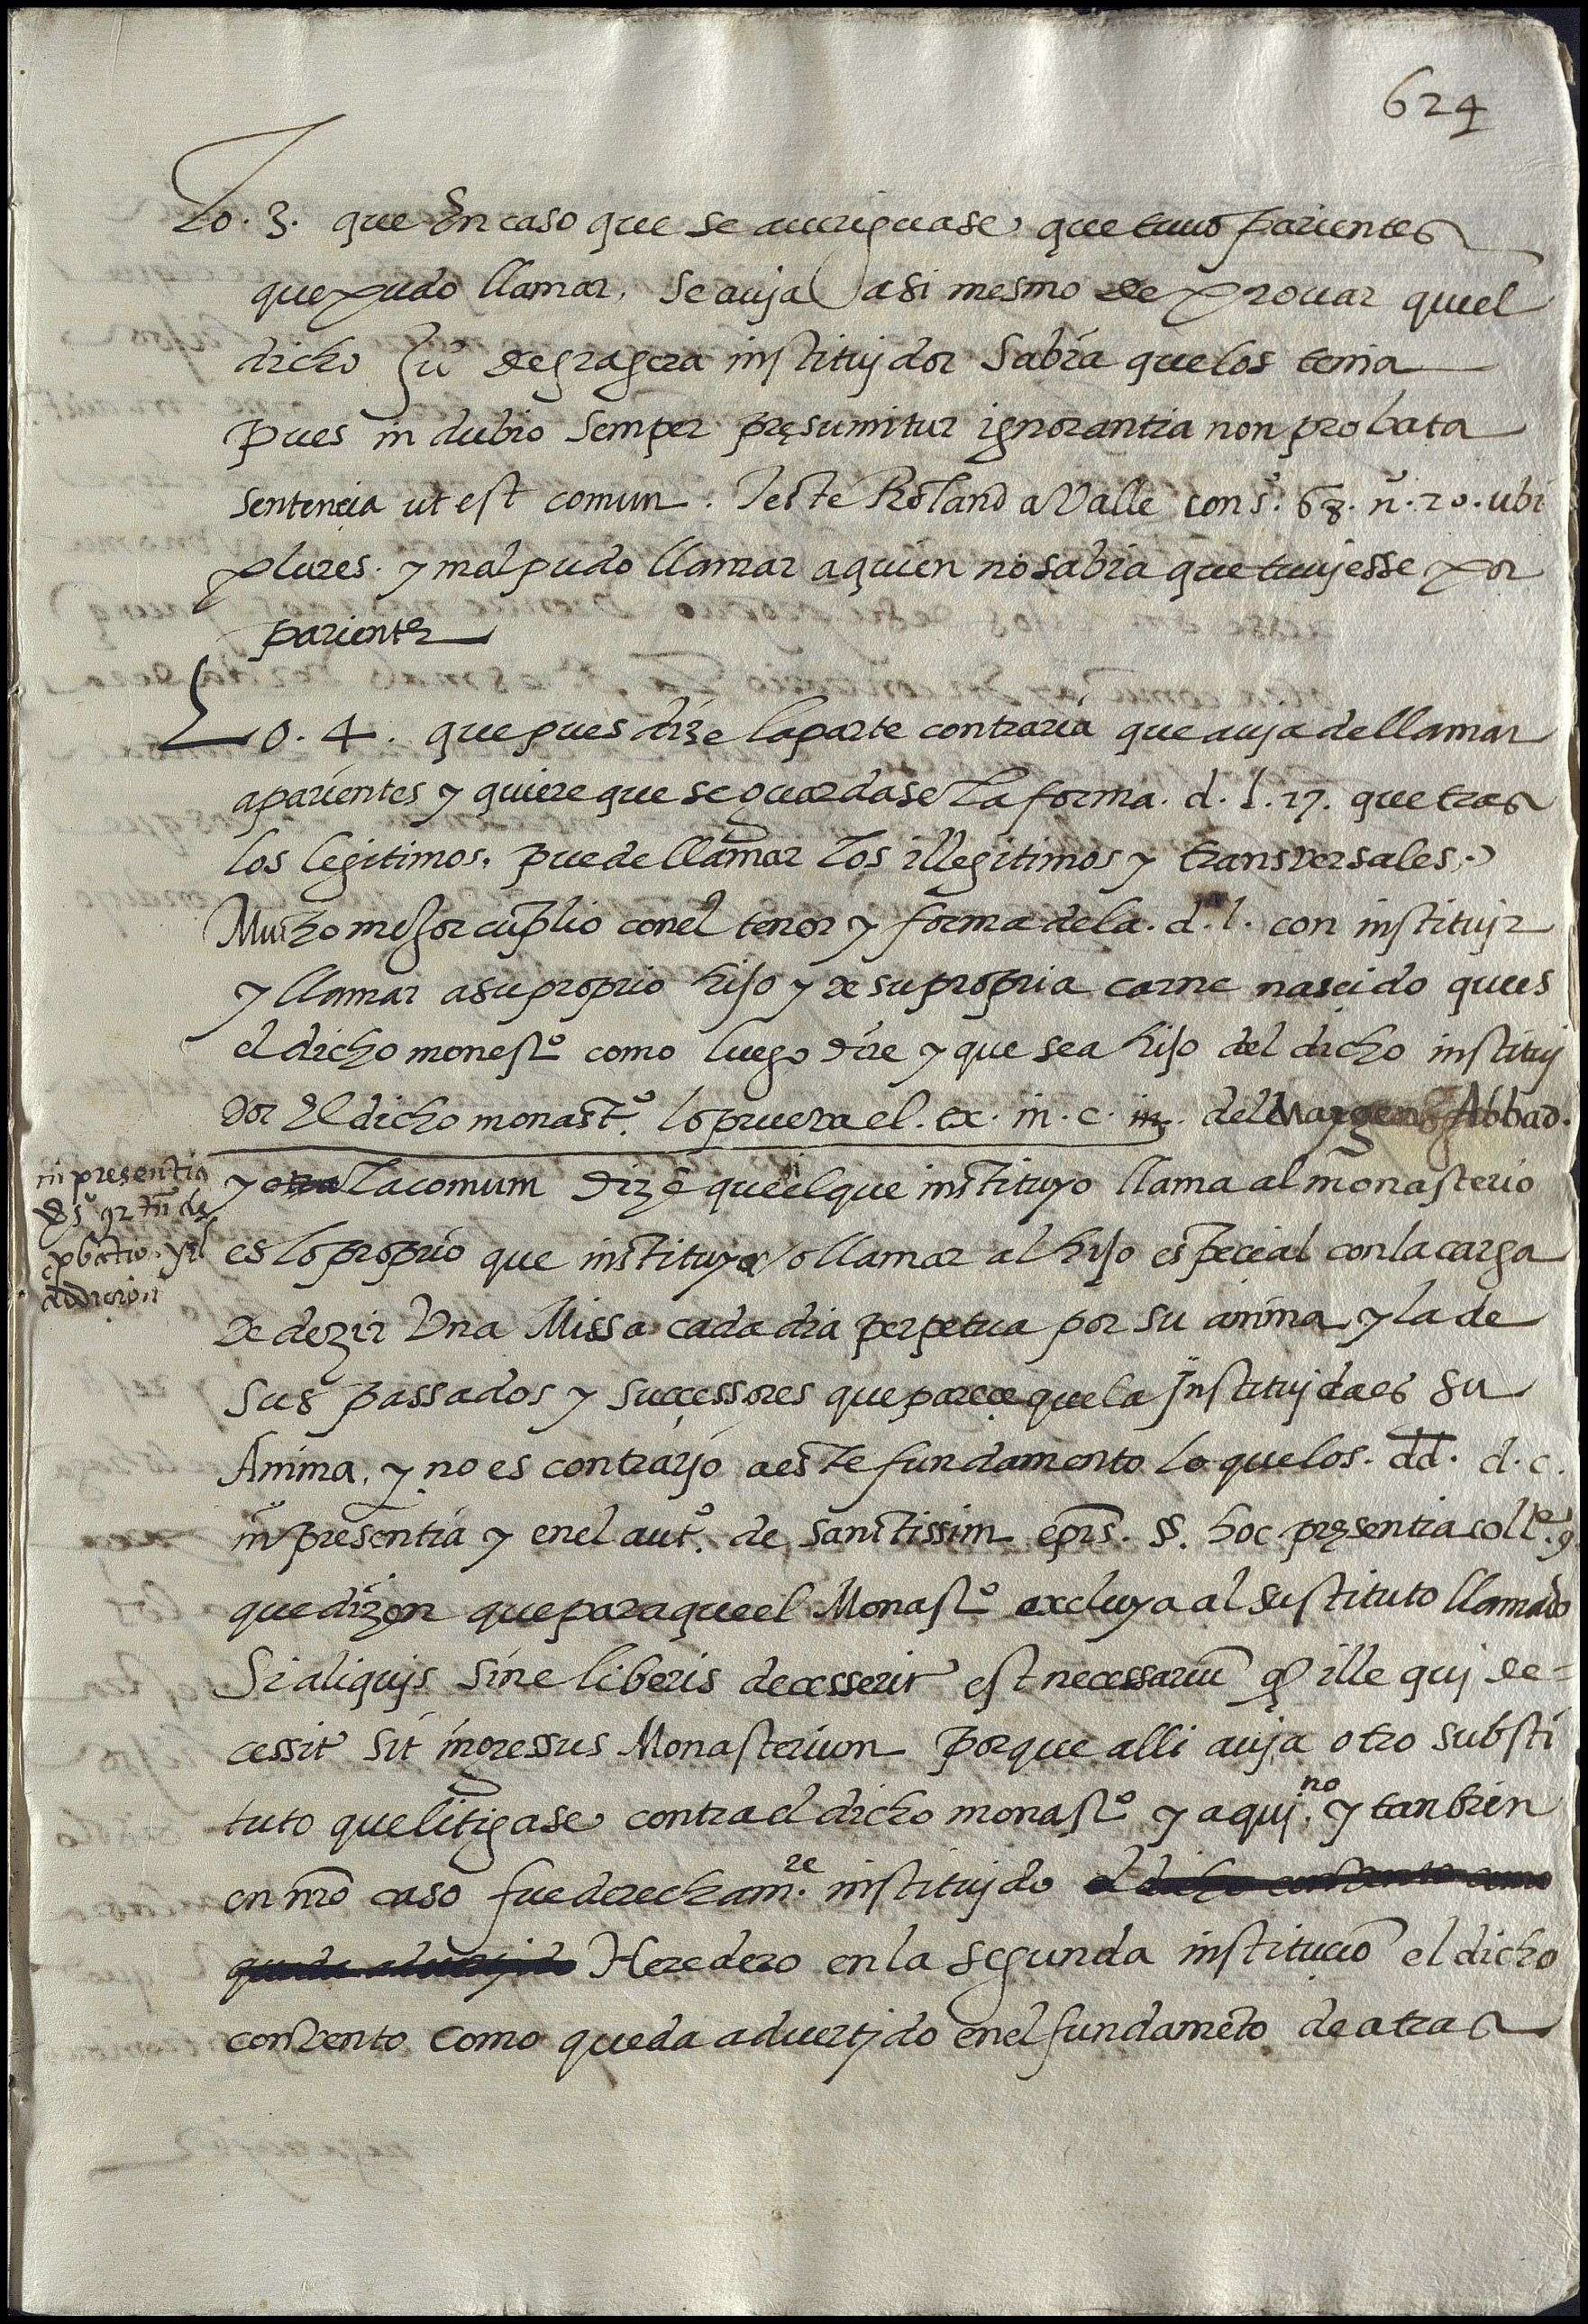 624
Lo. 3. que En caso que se aueriguase que tuuo parientes
que pudo llamar, se auja asi mesmo de prouar quel
dicho Ju° de gragera instituydor Sabia que los tenia
pues in dubio semper pręsumitur ignorantia non probata
sentencia ut est comun. Teste Roland a Valle cons°. 68. n°. 20. ubi
plures. y mal pudo llamar a quien no sabia que tuujesse por
pariente
Lo. 4. que pues dize la parte contraria que auja de llamar
a parientes y quiere que se guardase la forma. d. l. 27. que tras
los legitimos. puede llamar los illegitimos y transversales.
Mucho mejor cūplio con el tenor y forma de la. d. l. con instituir
y llamar a su proprio hijo y de su propria carne nascido que es
el dicho monestº como luego dire y que sea hijo del dicho institui
dor El dicho monastº. lo prueva el. tex. in. c. in. del Margen Abbad.
in presentia
y la comum dize que si el que instituyo llama al monasterio
de
pbatio. y
addicion
es lo proprio que instituyr o llamar al hijo especial con la carga
De dezir Una Missa cada dia perpetua por su anima y la de
sus passados y successores que parece que la Instituida es su
Anima, y no es contrario a este fundamento lo que los. dd. d. c.
in presentia y en el autº. de sanctissim epis. §. hoc pręsentia coll. 9.
que dizen que para que el Monastº excluya al sustituto llamado
Si aliquis sine liberis decesserit est necessariū qd ille qui de=
cessit sit ingressus Monasterium porque alli auja otro substi
tuto que litigase contra el dicho monastº y aqui no. y tanbien
en nrō caso fue derecham.te instituido el dicho conuento como
queda aduertido Heredero en la segunda institucio͂ el dicho
conuento como queda aduertido en el fundame͂to de atras